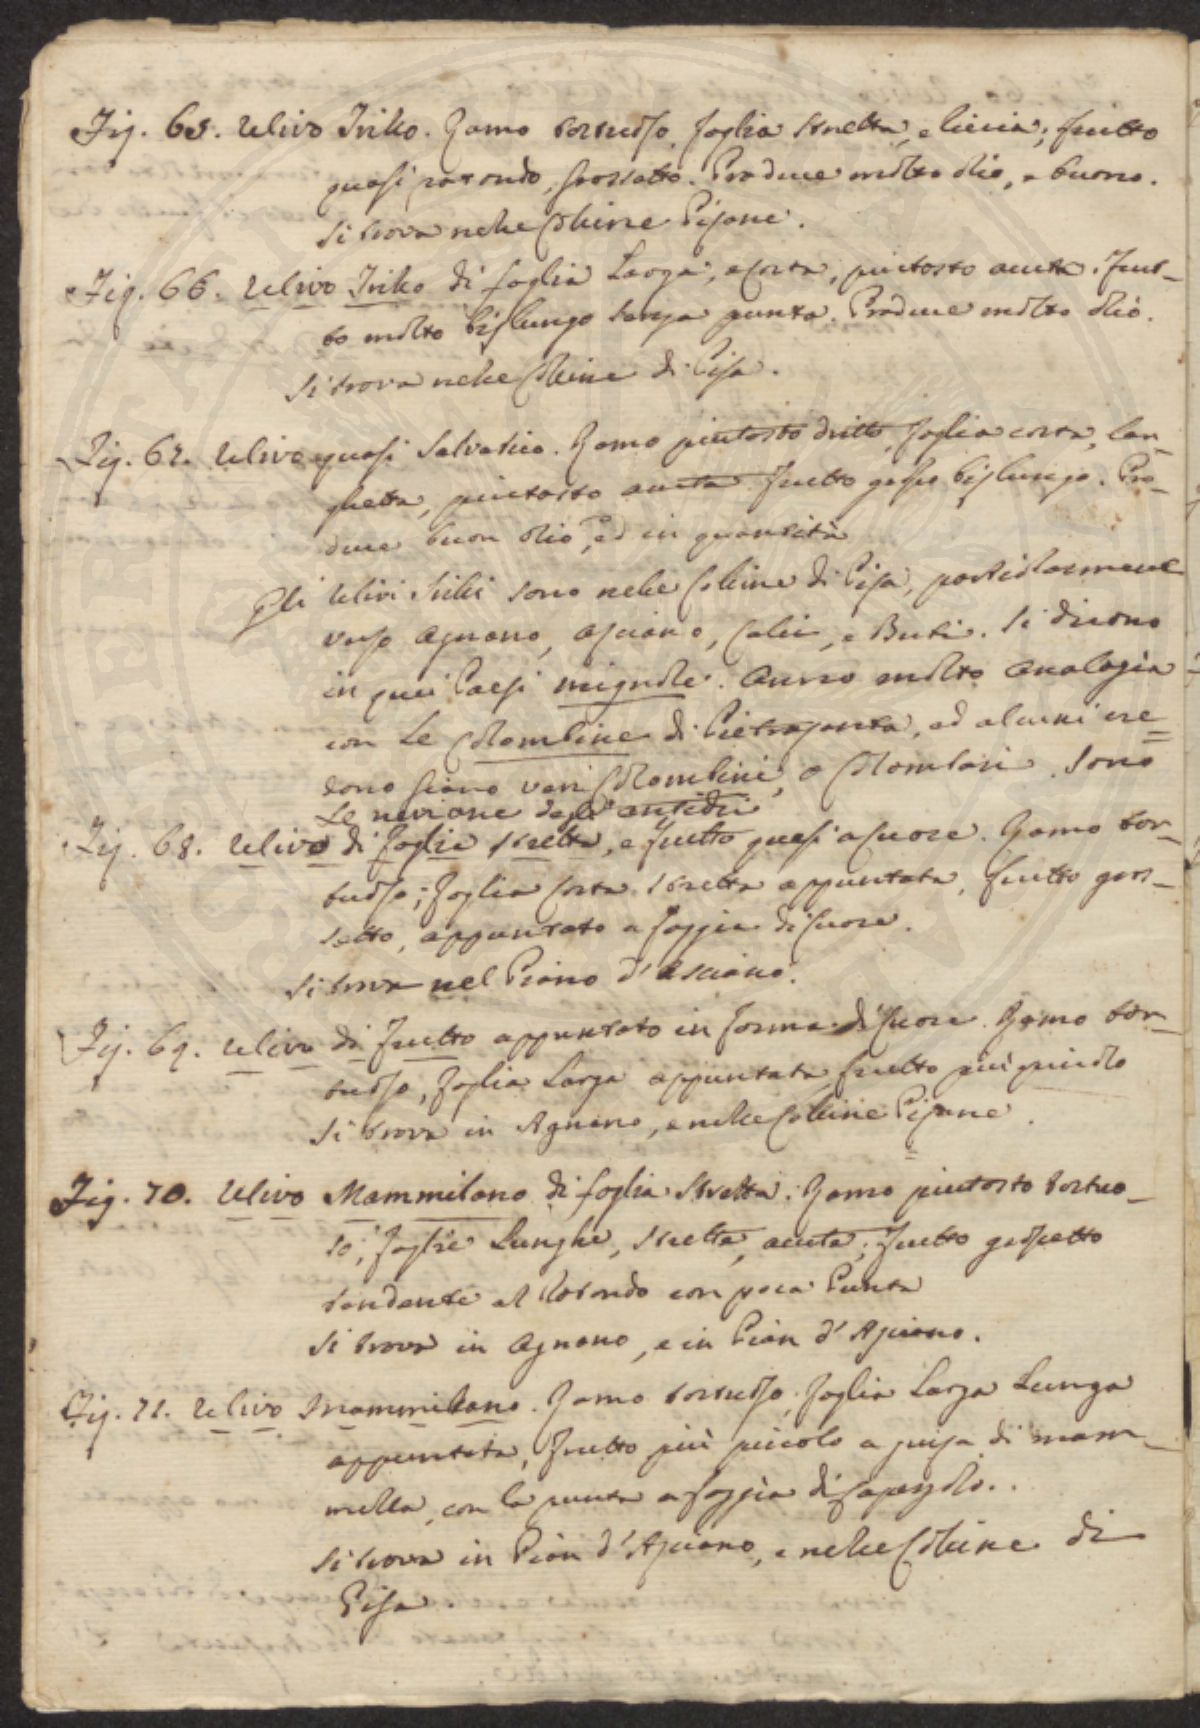 Fig. 65. Ulivo Triko. Ramo tortuoso, foglia stretta, e liscia; frutto
quasi rotondo, grossetto. Produce molto olio, e buono.
Si trova nelle Colline Pisane.
Fig. 66. Ulivo Triko di foglia Larga, e corta, piutosto acuta. Frut-
to molto bislungo senza punta. Produce molto olio.
Si trova nelle Colline di Pisa.
Fig. 67. Ulivo quasi Salvatico. Ramo piutosto dritto, foglia corta, lar-
ghetta, piutosto acuta. Frutto grosso bislungo. Pro-
duce buon olio, ed in quantità
Gli Ulivi sono nelle Colline di Pisa, particolarmente
verso Agnano, Asciano, Calci, e Buti. Si dicono
in quei Paesi mignole. Anno molta Analogia
con Le Colombine di Pietrasanta, ed alcuni cre=
dono siano veri Colombini, o Colombari. Sono
Le degl' antichi
Fig. 68. Ulivo di Foglia stretta, e frutto quasi a Cuore. Ramo tor-
tuoso; foglia Corta stretta appuntata, frutto gros-
setto, appuntato a foggia di Cuore.
Si trova nel Piano d'Asciano.
Fig. 69. Ulivo di Frutto appuntato in forma di Cuore. Ramo tor-
tuoso, foglia Larga appuntata, frutto più piccolo
Si trova in Agnano, e nelle Colline Pisane.
Fig. 70. Ulivo Mammilano di foglia Stretta. Ramo piutosto tortuo-
so, foglie Lunghe, stretta, acuta; frutto grossetto
tendente al Rotondo con poca Punta
Si trova in Agnano, e in Pian d'Asciano.
Fig. 71. Ulivo Mammilano. Ramo tortuoso, foglia Larga Lunga
appuntata, frutto più piccolo a guisa di mam-
mella, con la punta a foggia di Capezolo..
Si trova in Pian d'Asciano, e nelle Colline di
Pisa.